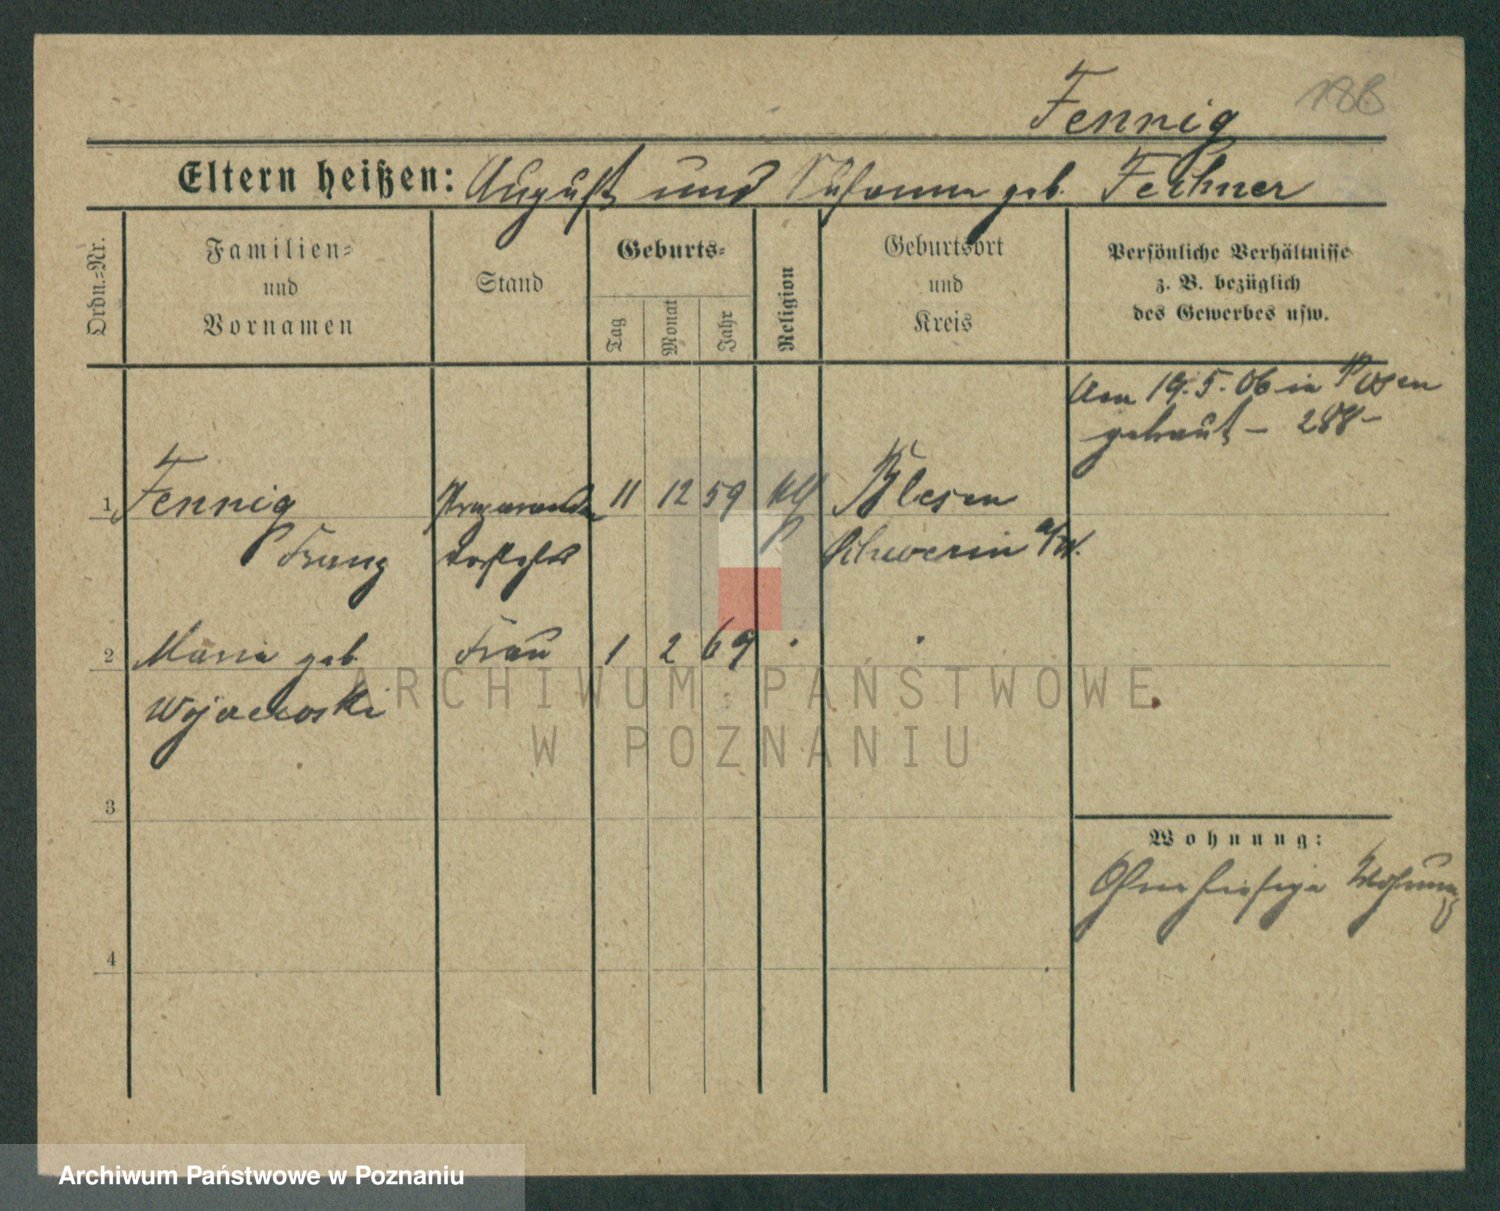 188
Fennig
Eltern heißen: August und Susanna geb. Fechner
Ordn.-Nr.
Familien-
und
Vornamen
Stand
Geburts-
Tag
Monat
Jahr
Religion
Geburtsort
und
Kreis
Persönliche Verhältnisse
z. B. bezüglich
des Gewerbes usw.
Am 19.5.06 in Posen
getraut – 288 –
1 Fennig Präparanden 11 12 59 Blesen
Franz Vorsteher Schwerin a/W.
2 Maria geb Frau 1 2 69 " "
Wojciechoski
3
4
Wohnung:
Ohne hiesige Wohnung
ARCHIWUM PAŃSTWOWE
W POZNANIU
Archiwum Państwowe w Poznaniu